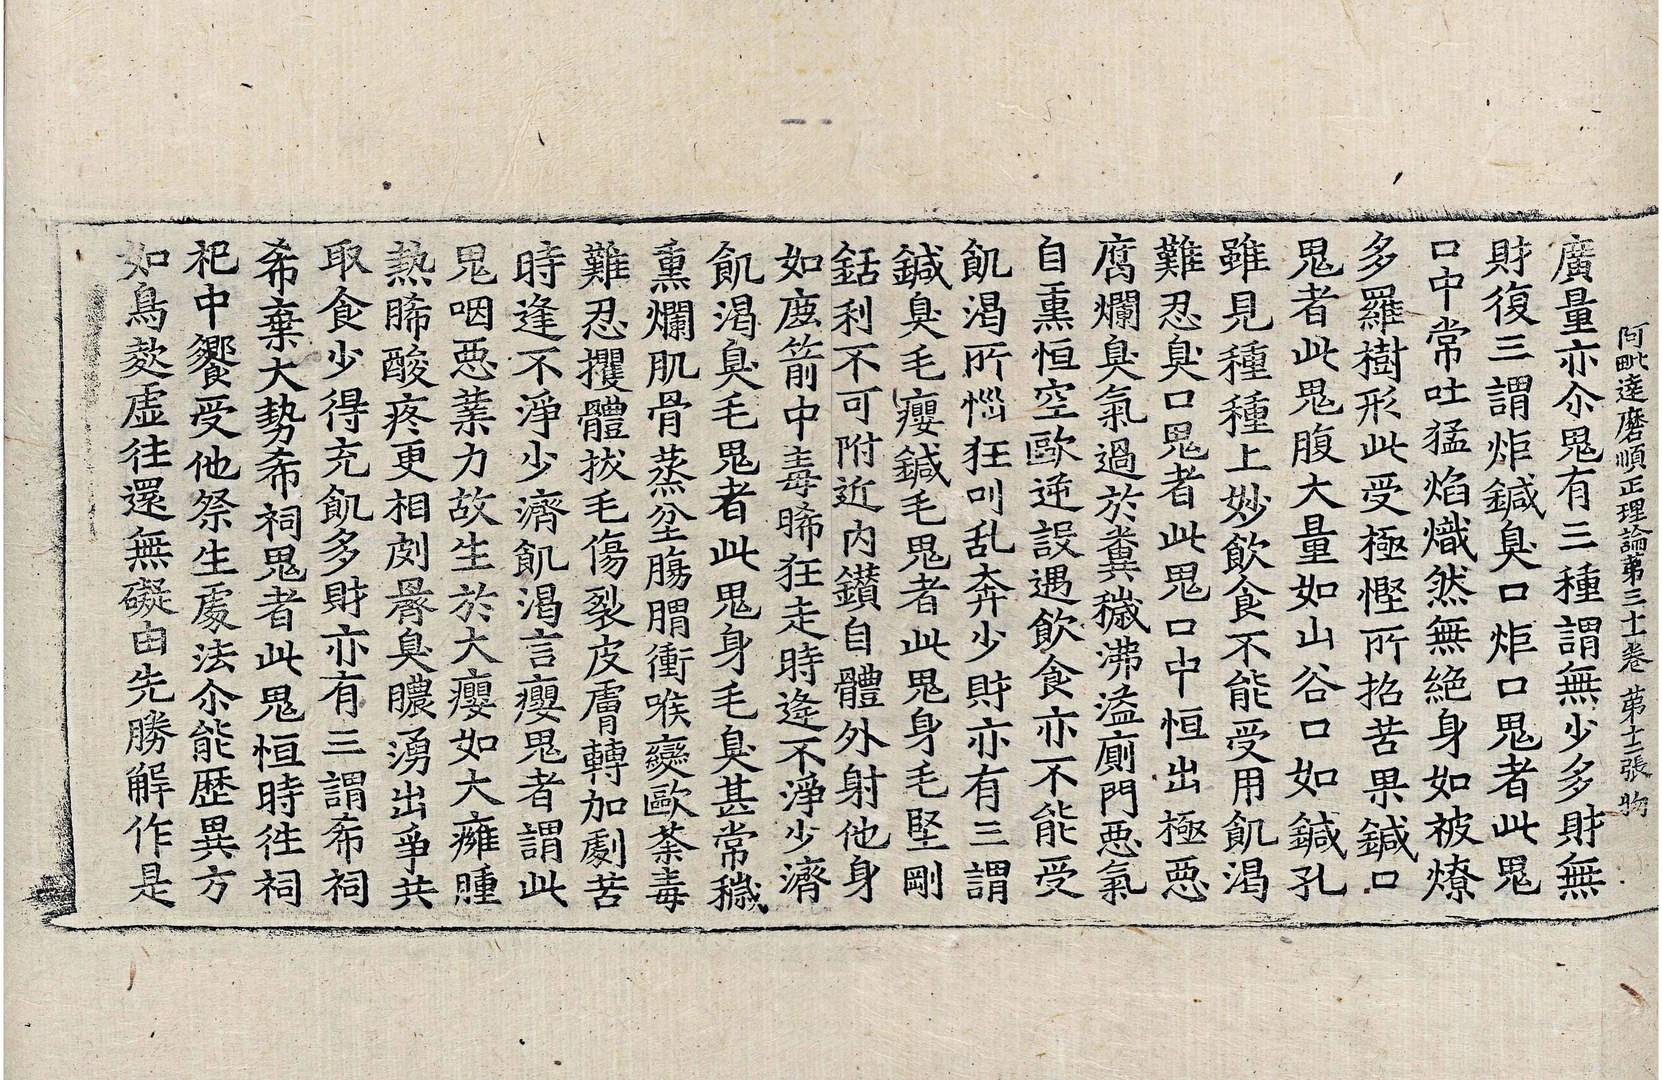 阿毗達磨順正理論第三十一卷 第十二張 物
廣量亦尒鬼有三種謂無少多財無
財復三謂炬鍼臭口炬口鬼者此鬼
口中常吐猛焰熾然無絕身如被燎
多羅樹形此受極慳所招苦果鍼口
鬼者此鬼腹大量如山谷口如鍼孔
雖見種種上妙飲食不能受用飢渴
難忍臭口鬼者此鬼口中恒出極惡
腐爛臭氣過於糞穢沸溢廁門惡氣
自熏恒空歐逆設遇飲食亦不能受
飢渴所惱狂叫乱奔少財亦有三謂
鍼臭毛癭鍼毛鬼者此鬼身毛堅剛
銛利不可附近內鑚自體外射他身
如鹿箭中毒晞狂走時逢不淨少濟
飢渴臭毛鬼者此鬼身毛臭甚常穢
熏爛肌骨蒸坌膓胃衝喉變歐荼毒
難忍攫體拔毛傷裂皮膚轉加劇苦
時逢不淨少濟飢渴言癭鬼者謂此
鬼咽惡業力故生於大癭如大癰腫
熱晞酸疼更相㓨臭膿湧出爭共
取食少得充飢多財亦有三謂希祠
希棄大勢希祠鬼者此鬼恒時往祠
祀中饗受他祭生處法尒能歷異方
如鳥㱆虛往還無礙由先勝解作是